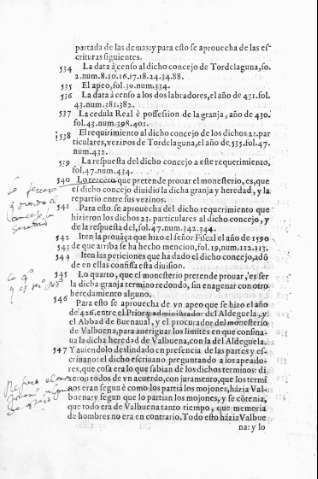 partada de las demas: y para esto se aprouecha de las es-
crituras siguientes.
534 La data à censo al dicho concejo de Tordelaguna, fo.
2. num. 8. 10. 16. 17. 18. 24. 34. 88.
535 El apeo, fol. 39. num. 334.
536 La data à censo a los dos labradores, el año de 451. fol.
43. num. 381. 382.
537 La cedula Real è possession de la granja, año de 430.
fol. 43. num. 398. 402.
538 El requirimiento al dicho concejo de los dichos 21. par
ticulares, vezinos de Tordelaguna, el año de 535. fol. 47.
num. 432.
539 La respuesta del dicho concejo a este requerimiento,
fol. 47. num. 434.
540 Lo tercero que pretende prouar el monesterio, es, que
el dicho concejo diuidio la dicha granja y heredad, y la
repartio entre sus vezinos.
541 Para esto se aprouecha del dicho requerimiento que
hizieron los dichos 21. particulares al dicho concejo, y
de la respuesta del, fol. 47. num. 342. 344.
542 Iten la prouāça que hizo el señor Fiscal el año de 1590
543 de que arriba se ha hecho mencion, fol. 19. num. 112. 113.
544 Iten las peticiones que ha dado el dicho concejo, adō
de en ellas confiessa esta diuision.
545 Lo quarto, que el monesterio pretende prouar, es ser
la dicha granja termino redondo, sin enagenar con otro
heredamiento alguno.
546 Para esto se aprouecha de vn apeo que se hizo el año
de 426. entre el Prior y administrador del Aldeguela, y
el Abbad de Buenaual, y el procurador del monesterio
de Valbuena, para aueriguar los limites en que confina-
ua la dicha heredad de Valbuena, con la del Aldeguela.
547 Y auiendolo deslindado en presencia de las partes y es-
criuano: el dicho escriuano preguntando a los apeado-
res, que cosa era lo que sabian de los dichos terminos: di
xeron todos de vn acuerdo, con juramento, que los termi
nos eran segun è como los partia los mojones, hàzia Val-
buena: y segun que lo partian los mojones, y se cōtenia,
que todo era de Valbuena tanto tiempo, que memoria
de hombres no era en contrario. Todo esto hàzia Valbue
na: y lo